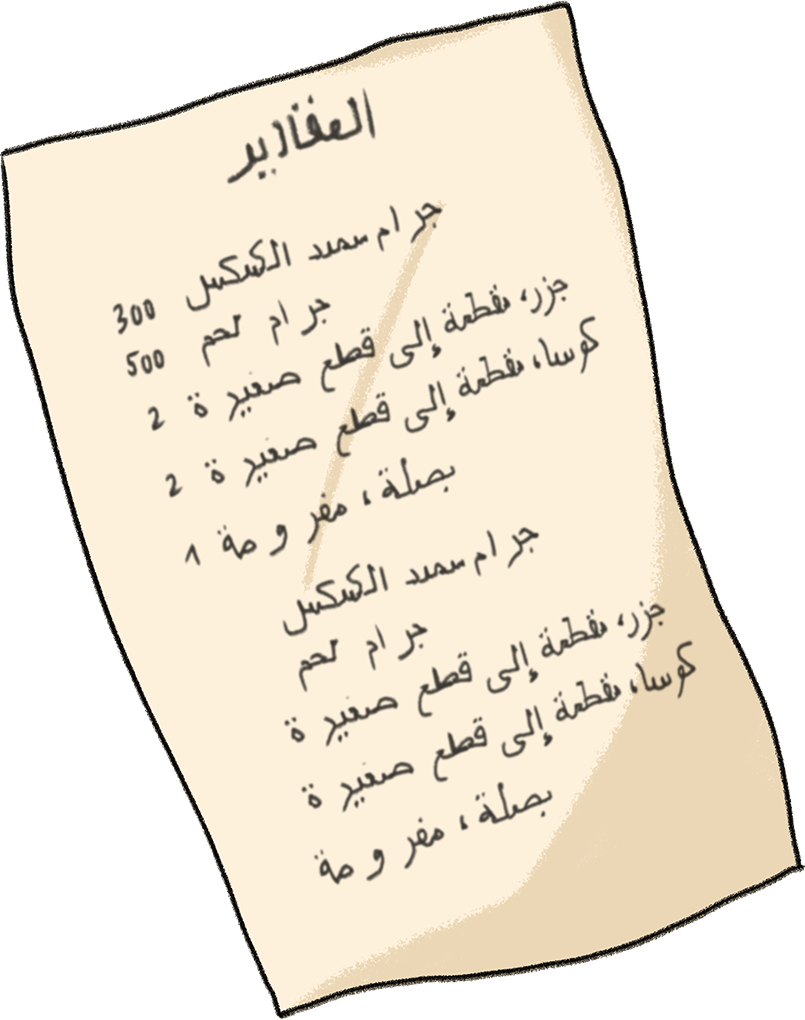 المقادير
جرام سميد الكسكس 300
جرام لحم 500
جزر، مقطعة إلى قطع صغيرة 2
كوسا، مقطعة إلى قطع صغيرة 2
بصلة، مفرومة 1
جرام سميد الكسكس
جرام لحم
جزر، مقطعة إلى قطع صغيرة
كوسا، مقطعة إلى قطع صغيرة
بصلة، مفرومة